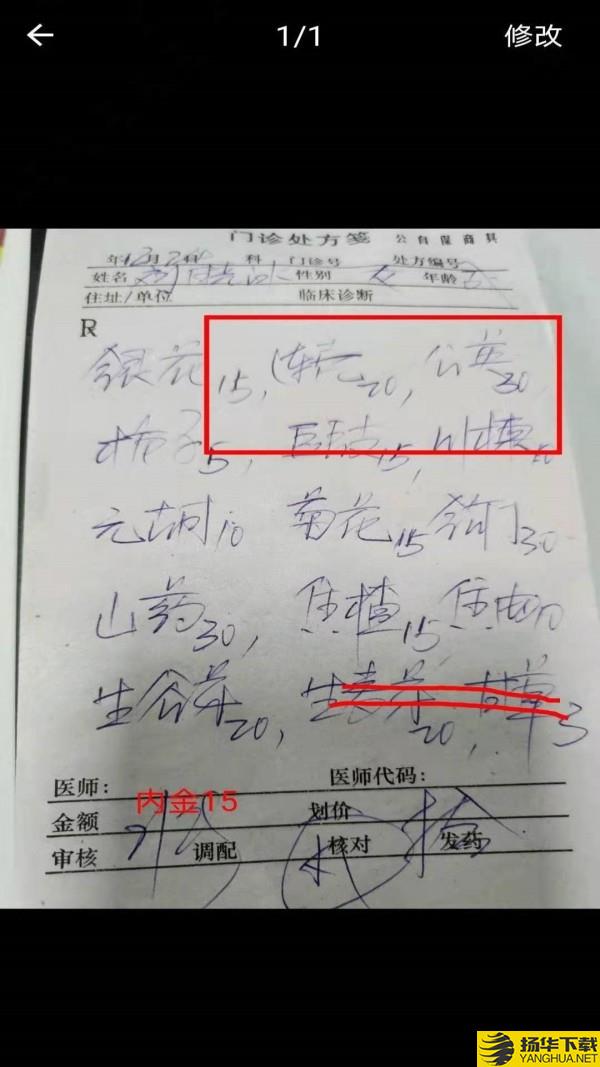 1/1 修改
门诊处方笺 公自煤商具
年12月2 科 门诊号 处方编号
姓名 性别 女 年龄
住址/单位 临床诊断
R
银花15, 连壳20, 公英30
栀子5, 豆豉15, 川楝10
元胡10 菊花15 钩丁30
山药30, 焦楂15 焦曲10
生谷芽20, 生麦芽20, 甘草3
医师: 医师代码:
内金15
金额 划价
审核 调配 核对 发药
扬华下载
YANGHUA.NET